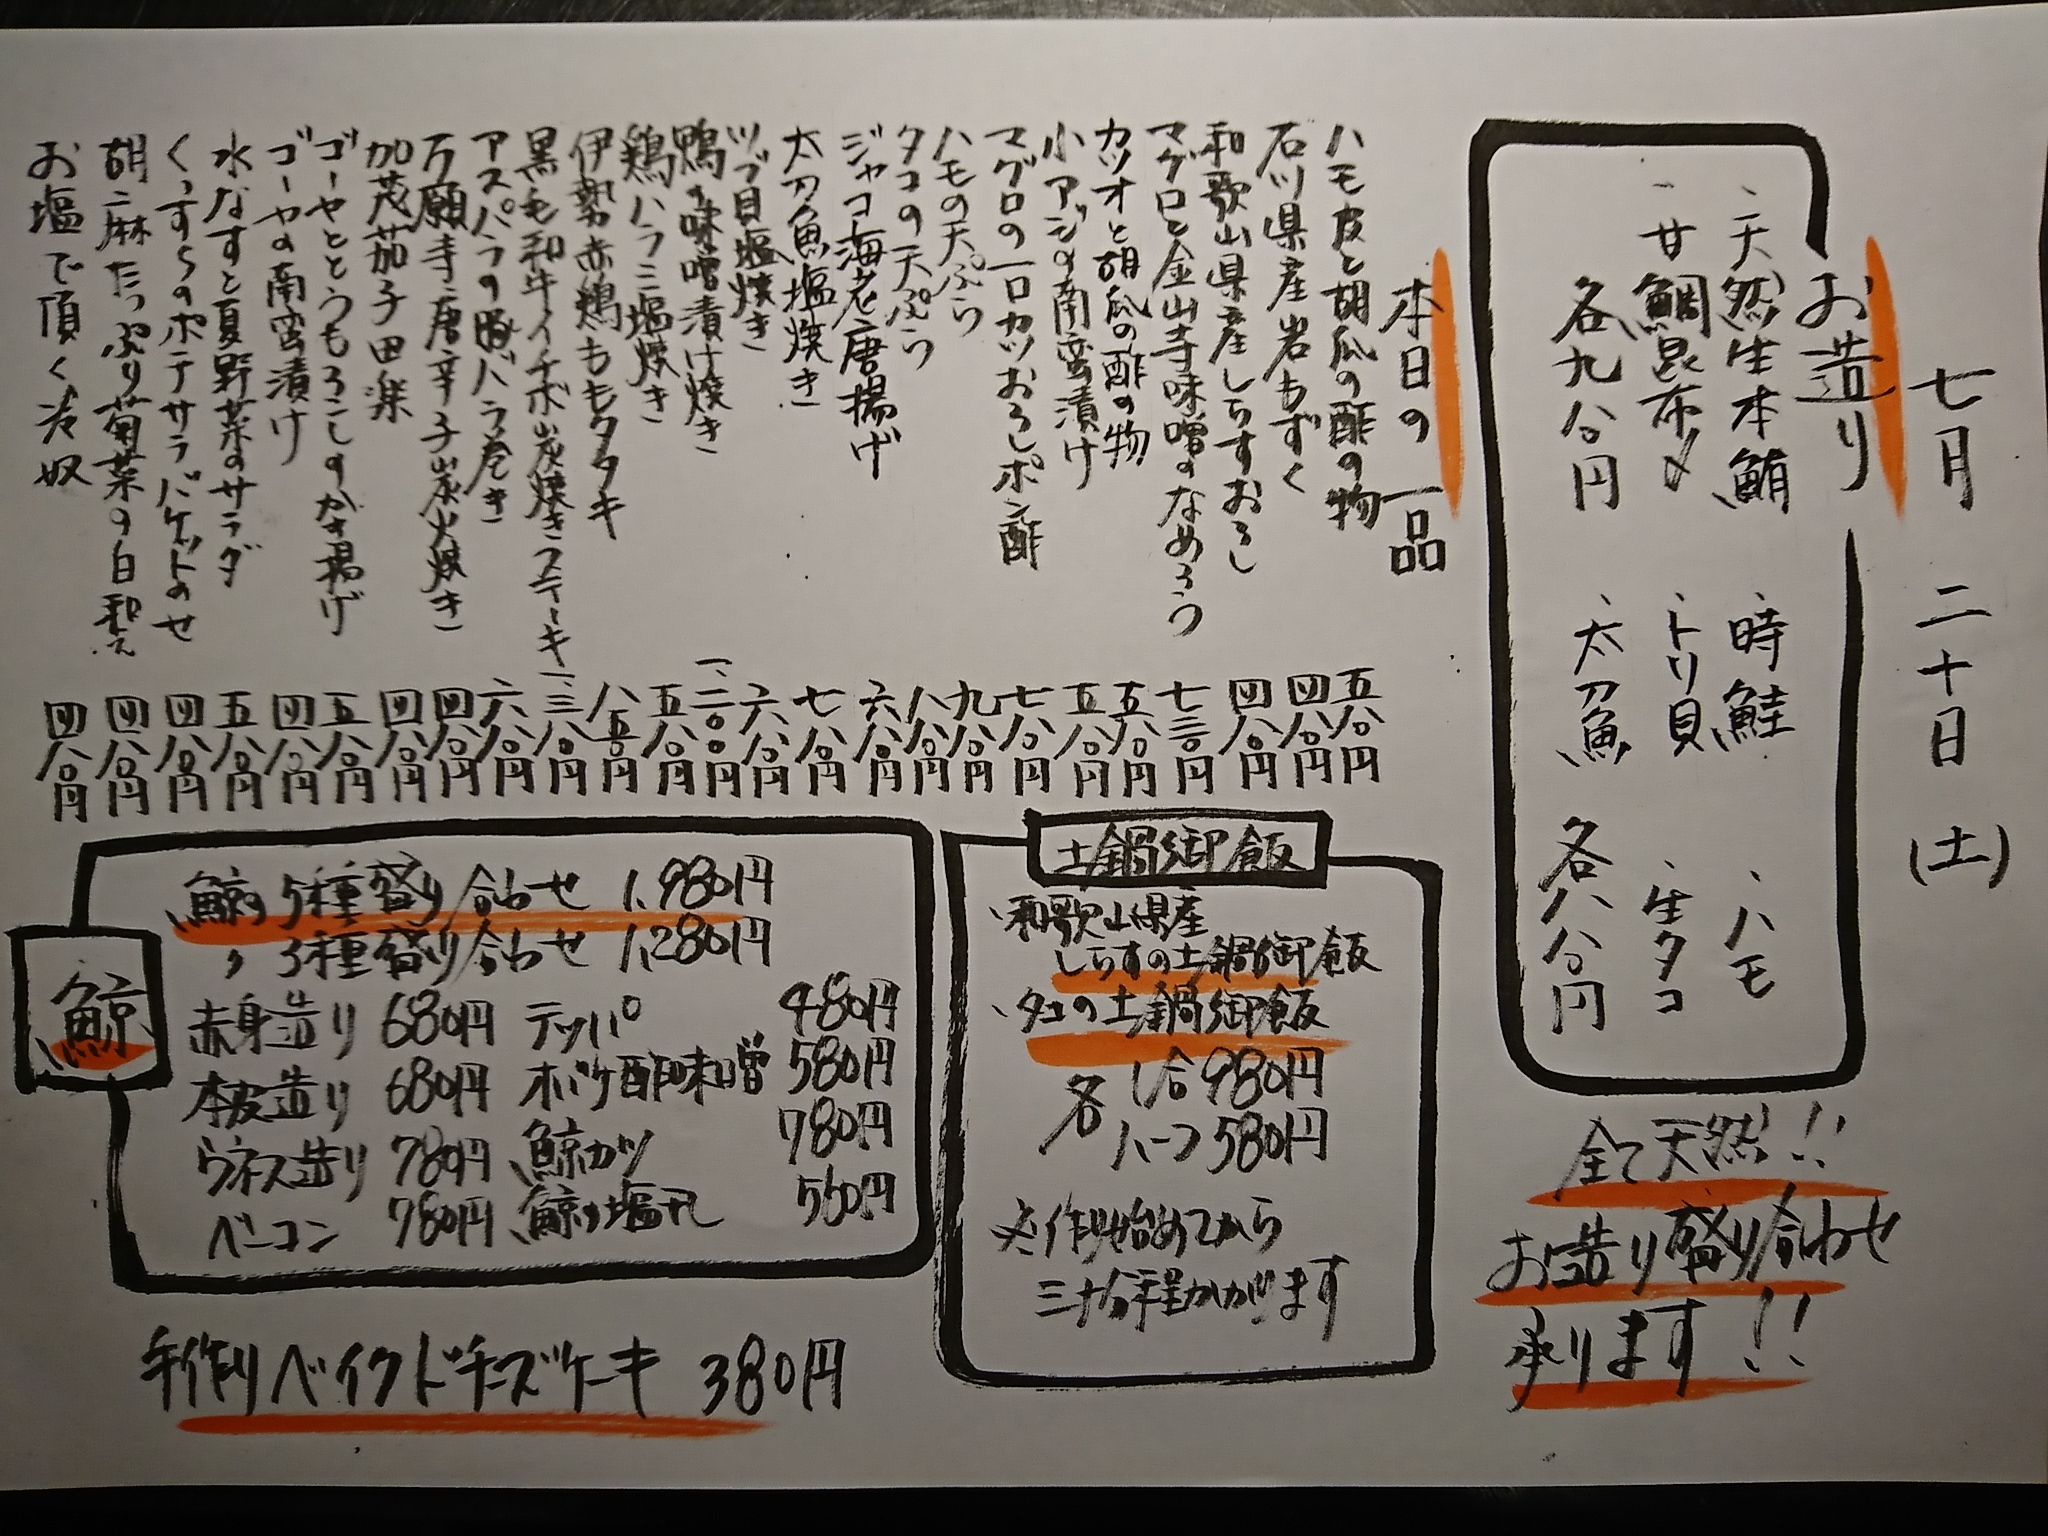 七月二十日(土)
お造り
、天然生本鮪 、時鮭 、ハモ
、甘鯛昆布〆 、トリ貝 、生タコ
各九八〇円 、太刀魚 各八八〇円
全て天然!!
お造り盛り合わせ
承ります!!
本日の一品
ハモ皮と胡瓜の酢の物 五八〇円
石川県産岩もずく 四八〇円
和歌山県産しらすおろし 四八〇円
マグロと金山寺味噌のなめろう 七三〇円
カツオと胡瓜の酢の物 五八〇円
小アジの南蛮漬け 五八〇円
マグロの一口カツおろしポン酢 七八〇円
ハモの天ぷら 九八〇円
タコの天ぷら 八八〇円
ジャコ海老唐揚げ 六八〇円
太刀魚塩焼き 七八〇円
ツブ貝塩焼き 六八〇円
鴨の味噌漬け焼き 一、二〇〇円
鶏ハラミ塩焼き 五八〇円
伊勢赤鶏ももタタキ 八五〇円
黒毛和牛イチボ炭焼きステーキ 一、三八〇円
アスパラの豚バラ巻き 六八〇円
万願寺唐辛子炭火焼き 四八〇円
加茂茄子田楽 四八〇円
ゴーヤととうもろこしのかき揚げ 五八〇円
ゴーヤの南蛮漬け 四八〇円
水なすと夏野菜のサラダ 五八〇円
くんすらのポテサラバケットのせ 四八〇円
胡ニ麻たっぷり菊菜の白和え 四八〇円
お塩で頂く冷奴 四八〇円
土鍋御飯
、和歌山県産
しらすの土鍋御飯
、タコの土鍋御飯
各 1合980円
ハーフ580円
※作り始めてから
三十分程かかります
鯨
鯨の5種盛り合わせ 1,980円
〃 3種盛り合わせ 1,280円
赤身造り 680円 テッパ 480円
本皮造り 680円 オバケ酢味噌 580円
ウネス造り 780円 鯨カツ 780円
ベーコン 780円 鯨の塩丸 560円
手作りベイクドチーズケーキ 380円